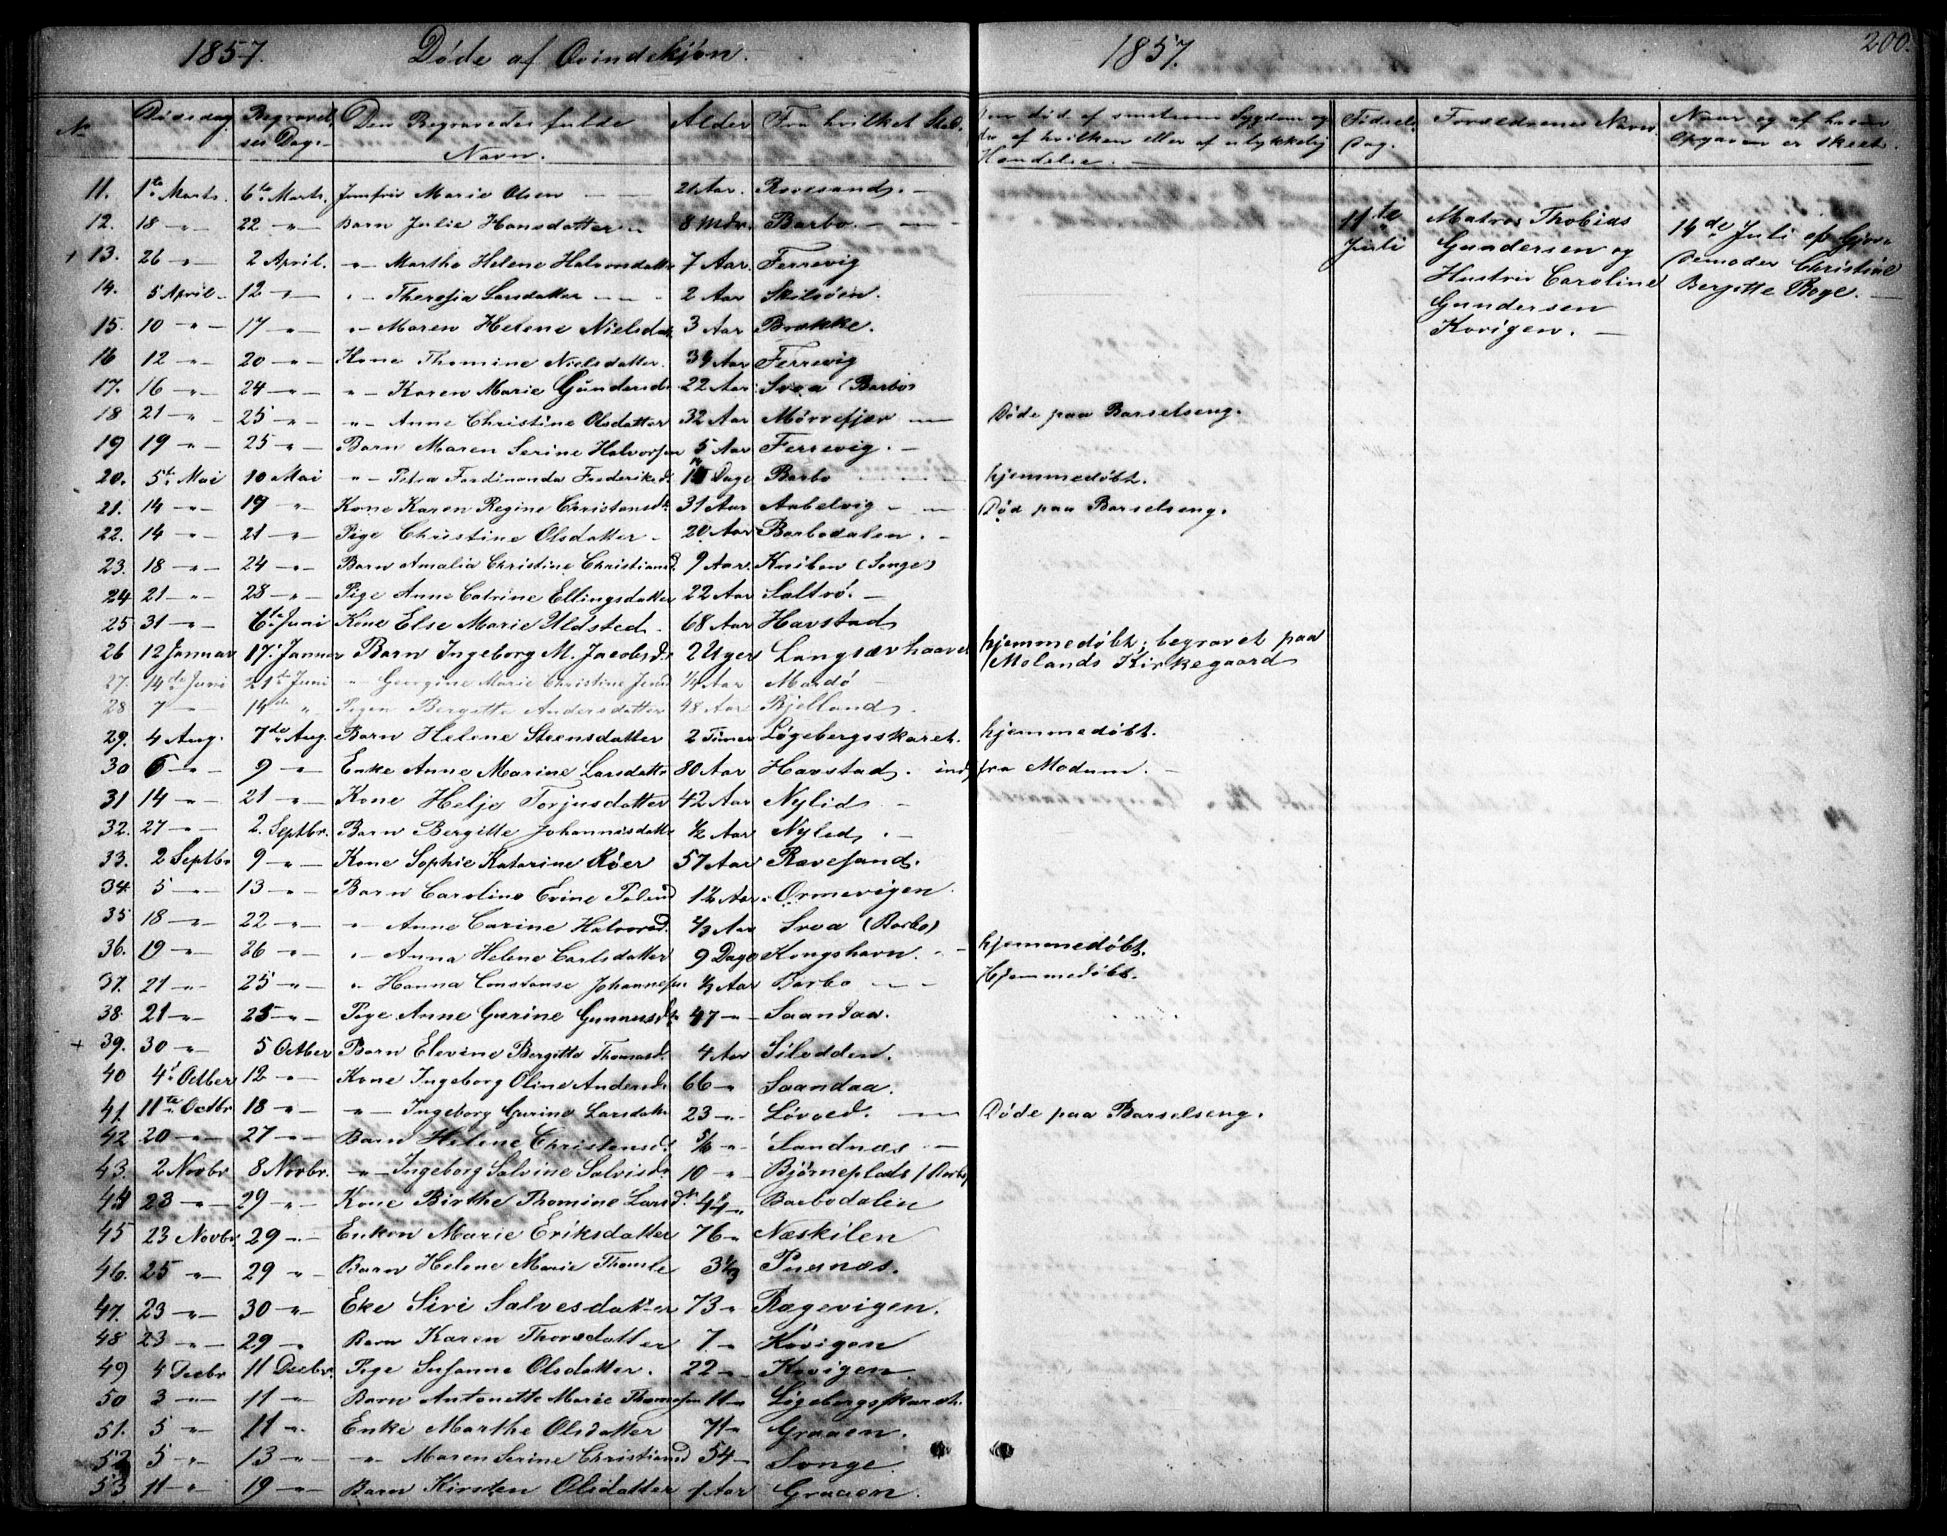 1857. Døde af Qvindekjøn. 1857. 200.
No Dødsdag. Begravel- Den Begravedes fulde Alder Fra hvilket Sted. Om død af smitsom Sygdom og Fødsels Forældrenes Navn. Naar og af hvem
ses Dag. Navn. af hvilken eller af ulykkelig Dag. Opgaven er skeet.
Hændelse.
11. 1te Marts. 6te Marts. Jomfru Marie Olsen Rævesand.
12. 18 " 22 " Barn Julie Hansdatter 8 Mdr. Barbo. 11te Matros Thobias 14de Juli af Gjor-
13. 26 " 2 April. " Marthe Helene Halvorsdatter 7 Aar. Færevig Juli Gundersen og demoder Christine
14. 5 April 12 " " Theresia Larsdatter 2 Aar Skilsøen. Hustru Caroline Bergitte Boye.
15. 10 " 17 " " Maren Helene Nielsdat. 3 Aar Brække. Gundersen
16 12 " 20 " Kone Thomine Nielsdatter. 34 Aar Færrevig Kovigen.
17. 16 " 24 " " Karen Marie Gundersd. 22 Aar Svoa (Barbo)
18 21 " 25 " " Anne Christine Olsdatter 32 Aar Mørrefjær Døde paa Barselseng.
19 19 " 25 " Barn Maren Serine Halvorsen 5 Aar Færrevig.
20. 5te Mai 10 Mai " Petra Ferdinanda Frederiksd. Dage Barbo hjemmedøbt.
21. 14 " 19 " Kone Karen Regine Christensdt. 31 Aar Aabelvig Død paa Barselseng.
22. 14 " 21 " Pige Christine Olsdatter 20 Aar Barbodalen.
23. 18 " 24 " Barn Amalia Christine Christiansd. 9 Aar. Kniben (Songe)
24 21 " 28 " Pige Anne Catrine Ellingsdatter 22 Aar Saltrø.
25 31 " 6te Juni Kone Else Marie Uldsted. 68 Aar Havstad
26 12 Januar 17. Januar Barn Ingeborg M. Jacobsd. 2 Uger Langsævhaavet hjemmedøbt; begravet paa
Molands Kirkegaard
27. 14de Juni 21te Juni " Georgine Marie Christine Jensd. ¼ Aar Mærdø
28 7 " 14de " Pigen Bergitte Andersdatter 48 Aar Bjelland.
29. 4 Aug. 7de Aug. Barn Helene Steensdatter 2 Timer Løgebergsskaret. hjemmedøbt.
30 6 " 9 " Enke Anne Marine Larsdatter 80 Aar Havstad. indf. fra Modum.
31 14 " 21 " Kone Helje Torjusdatter 42 Aar Nylid
32. 27 " 2. Septbr. Barn Bergitte Johannisdatter ½ Aar Nylid.
33. 2 Septbr 9 " Kone Sophie Katarine Røer 57 Aar Rævesand.
34 5 " 13 " Barn Caroline Evine 1½ Aar. Ormevigen.
35 18 " 22 " " Anne Carine Halvorsd. Aar Svoa (Barbo)
36. 19 " 26 " " Anna Helene Carlsdatter 9 Dage Kongshavn. hjemmedøbt.
37. 21 " 25 " " Hanna Constanse Johannesen ½ Aar Barbo Hjemmedøbt.
38. 21 " 25 " Pige Anne Gurine Gunnusdt. 47 " Saandaa.
+ 39. 30 " 5 Octber Barn Elevine Bergitte Thomasd. 4 Aar Silodden.
40 4de Octber 12 " Kone Ingeborg Oline Andersd. 66 " Saandaa.
41. 11te Octbr 18 " " Ingeborg Gurine Larsdatter 23 " Løvold. Døde paa Barselseng.
42 20 " 27 " Barn Helene Christensd. " Sandnæs
43. 2 Novbr 8 Novbr. " Ingeborg Salvine Salvisd. 10 " Bjørneplads (Barbo)
44 23 " 29 " Kone Birthe Thomine Larsdt. 44 " Barbodalen
45 23 Novbr. 29 " Enken Marie Eriksdatter 76 " Næskilen
46. 25 " 29 " Barn Helene Marie 3½ Pusnæs.
47. 23 " 30 " Eke Siri Salvesdatter 73 " Rægevigen.
48 23 " 29 " Barn Karen Thorsdatter 7 " Kovigen
49 4 Decbr 11 Decbr. Pige Susanne Olsdatter. 22 " Kovigen.
50 3 " 11 " Barn Antonette Marie Thomesen 11 " Løgebergsskaret.
51. 5 " 11 " Enke Marthe Olsdatter 71 " Graaen.
52 5 " 13 " " Maren Serine Christiansd 54 " Songe.
53 11 " 19 " Barn Kirsten Olsdatter 1 Aar Graaen.